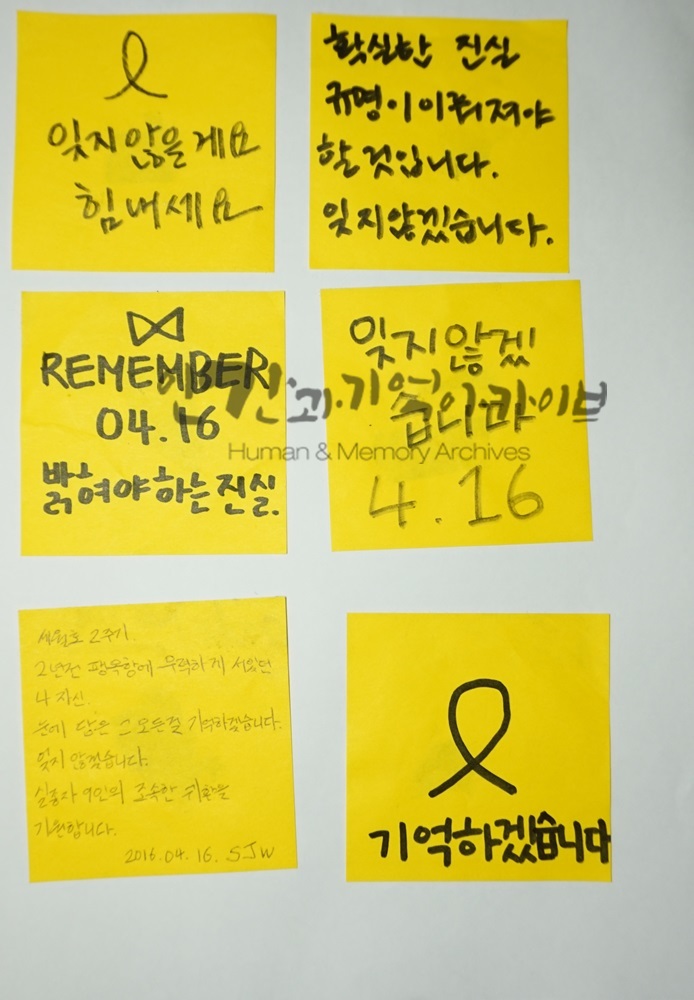 잊지 않을게요
힘내세요
확실한 진실
규명이 이뤄져야
할 것입니다.
잊지않겠습니다.
REMEMBER
04.16
밝혀야하는 진실.
잊지 않겠
습니다
4.16
인간과기억의아카이브
Human & Memory Archives
세월호 2주기
2년전 팽목항에 무력하게 서있던
나 자신.
눈에 담은 그 모든걸 기억하겠습니다.
잊지 않겠습니다.
실종자 9인의 조속한 귀환을
기원합니다.
2016.04.16. SJW
기억하겠습니다